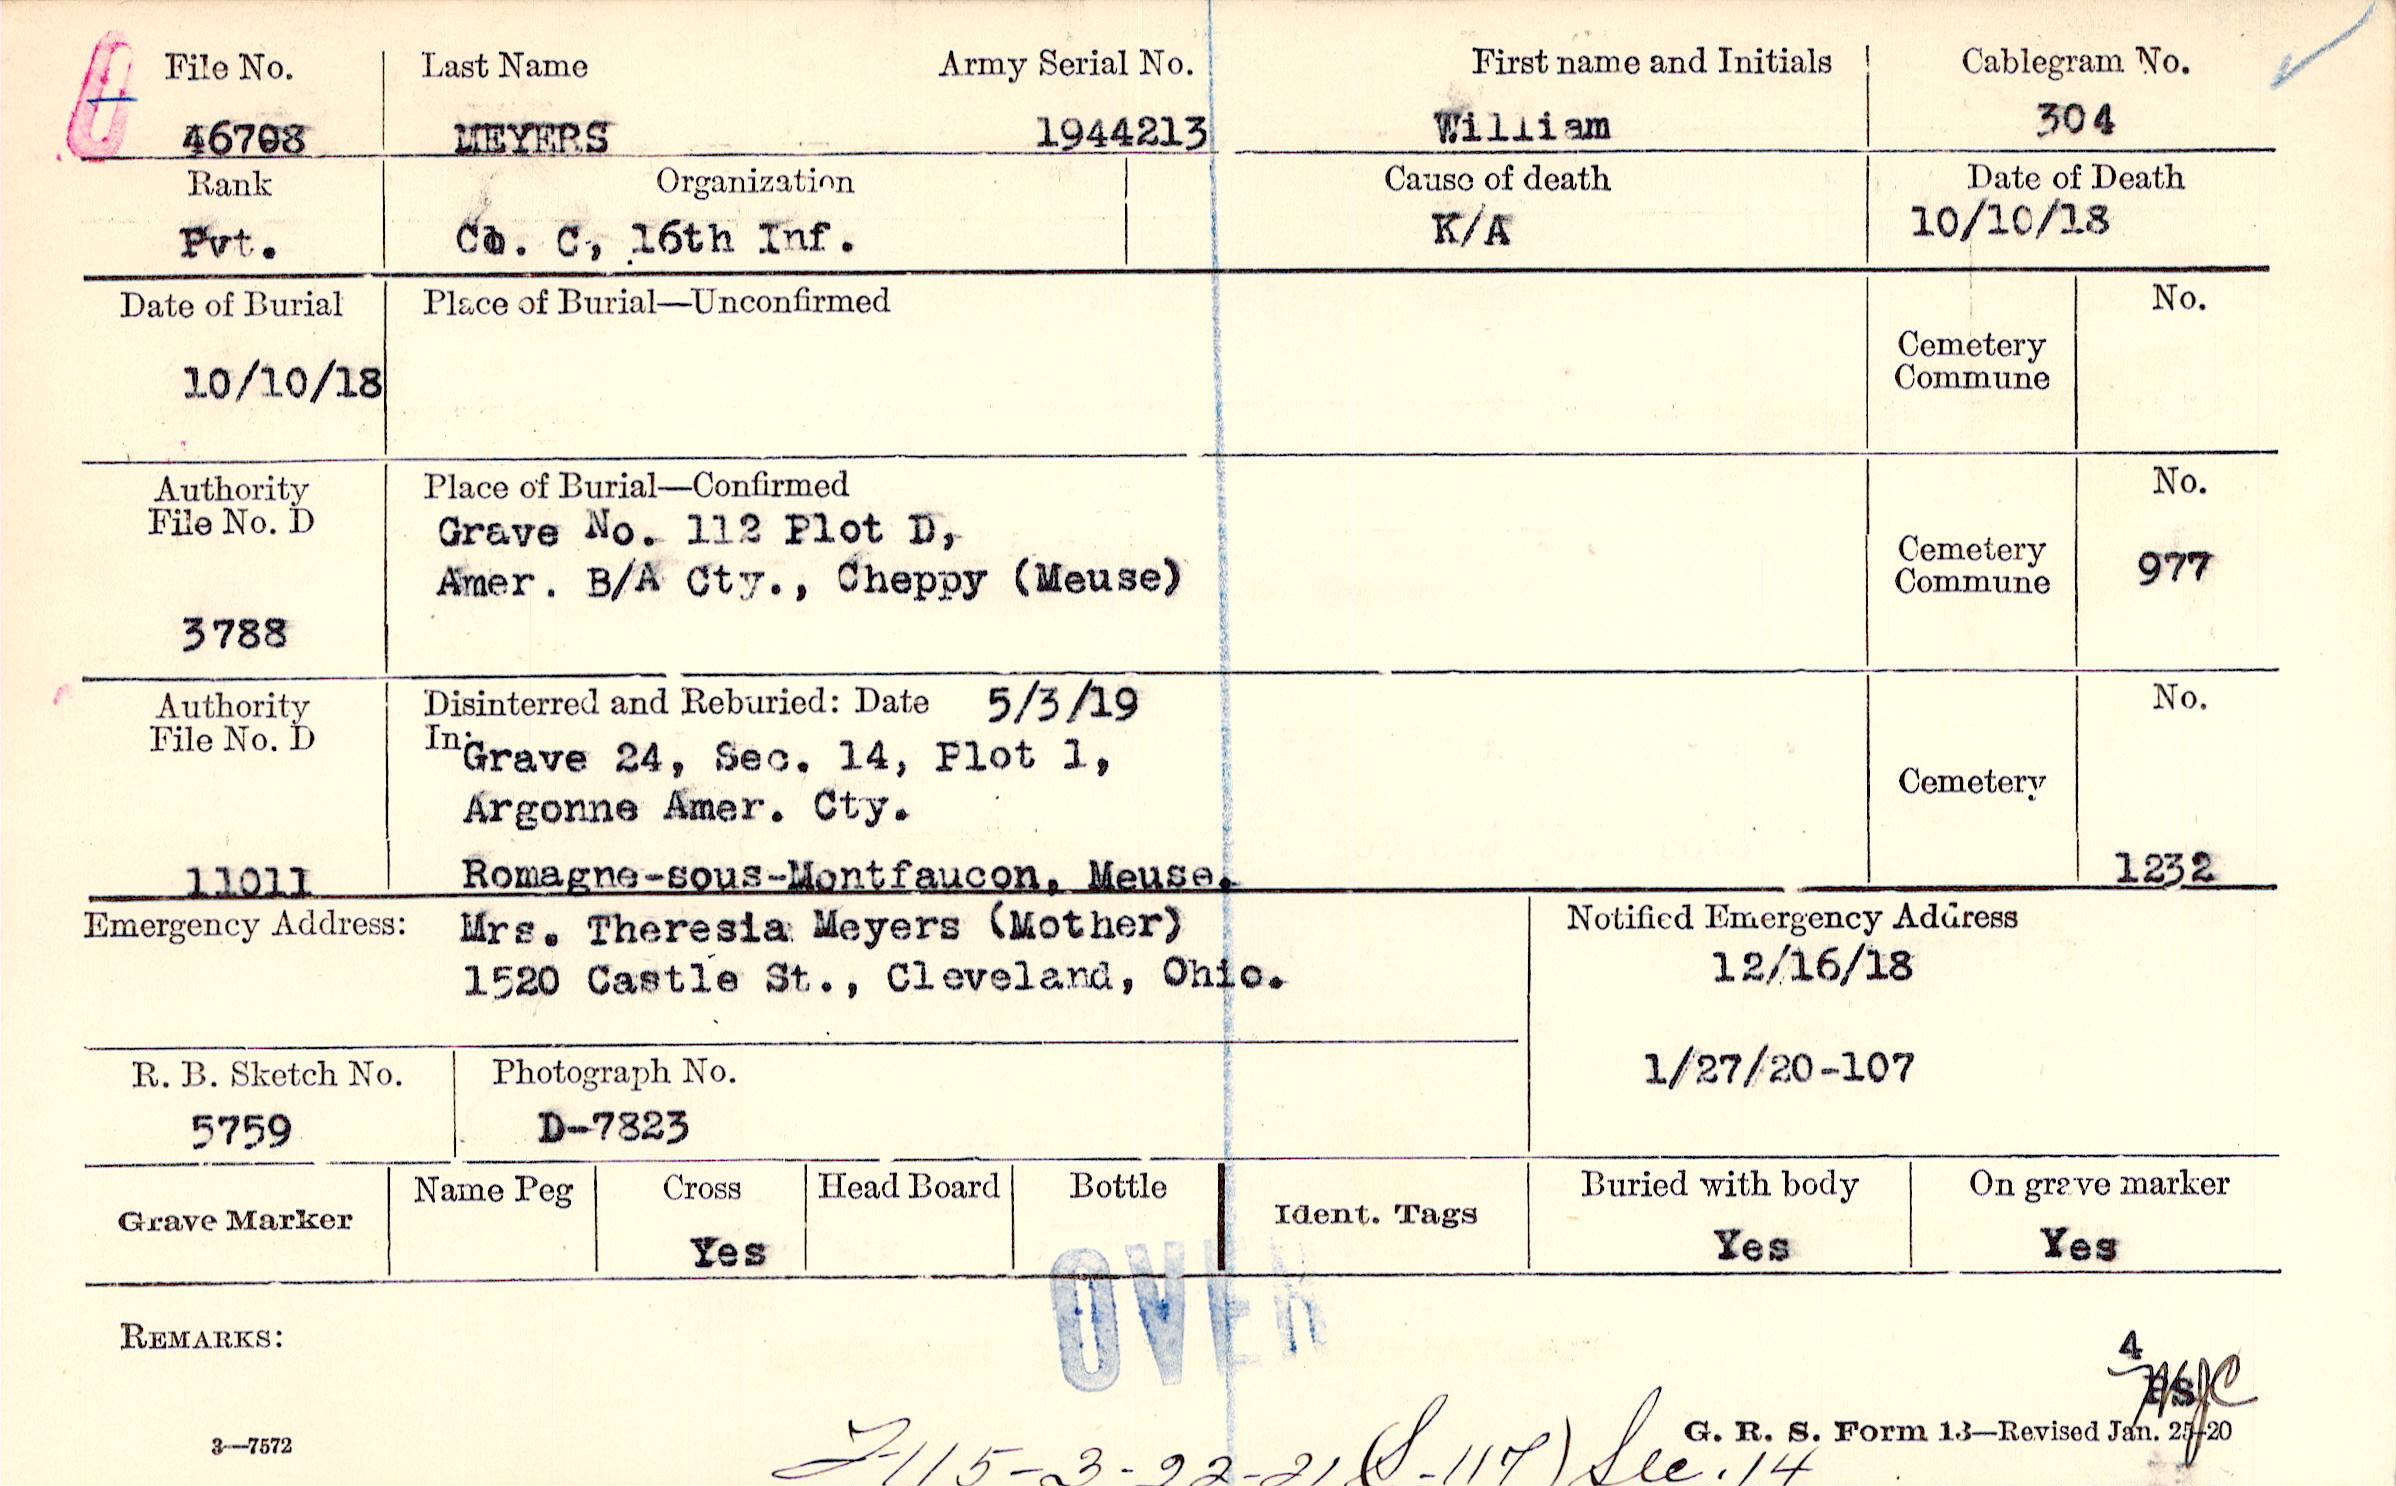 File No. Last Name Army Serial No. First name and Initials Cablegram No.
46708 MEYERS 1944213 William 304
Rank Organization Cause of death Date of Death
Pvt. Co. C, 16th Inf. K/A 10/10/18
Date of Burial Place of Burial—Unconfirmed No.
Cemetery
Commune
10/10/18
Authority Place of Burial—Confirmed No.
File No. D
Grave No. 112 Plot D,
Amer. B/A Cty., Cheppy (Meuse)
Cemetery
Commune
977
3788
Authority Disinterred and Reburied: Date 5/3/19 No.
File No. D In:
Grave 24, Sec. 14, Plot 1,
Argonne Amer. Cty.
Cemetery
11011 Romagne-sous-Montfaucon, Meuse. 1232
Emergency Address: Mrs. Theresia Meyers (Mother) Notified Emergency Address
1520 Castle St., Cleveland, Ohio. 12/16/18
1/27/20-107
R. B. Sketch No. Photograph No.
5759 D-7823
Grave Marker Name Peg Cross Head Board Bottle Ident. Tags Buried with body On grave marker
Yes Yes Yes
OVER
REMARKS:
4
G. R. S. Form 13—Revised Jan. 25-20
3—7572
115-3-22-21 (S-117) Sec. 14